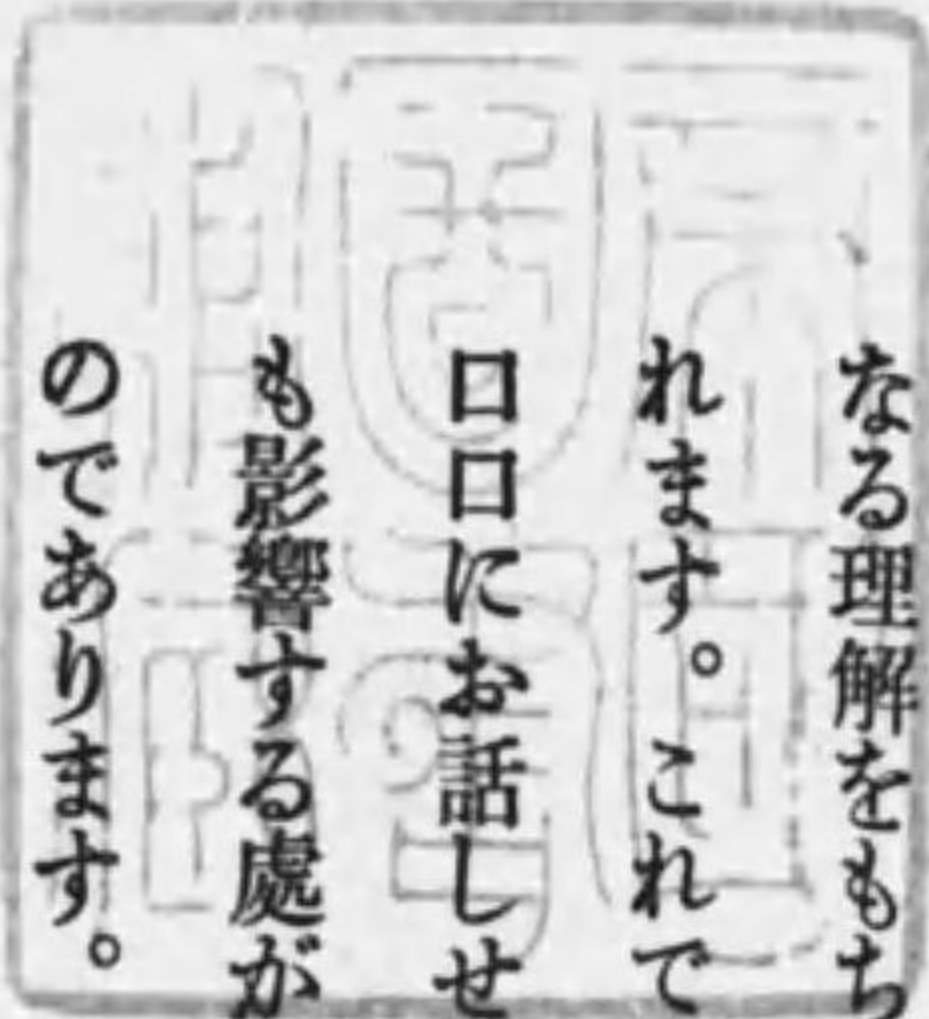 なる理解をもち
れます。これで
口口にお話しせ
も影響する處が
のであります。